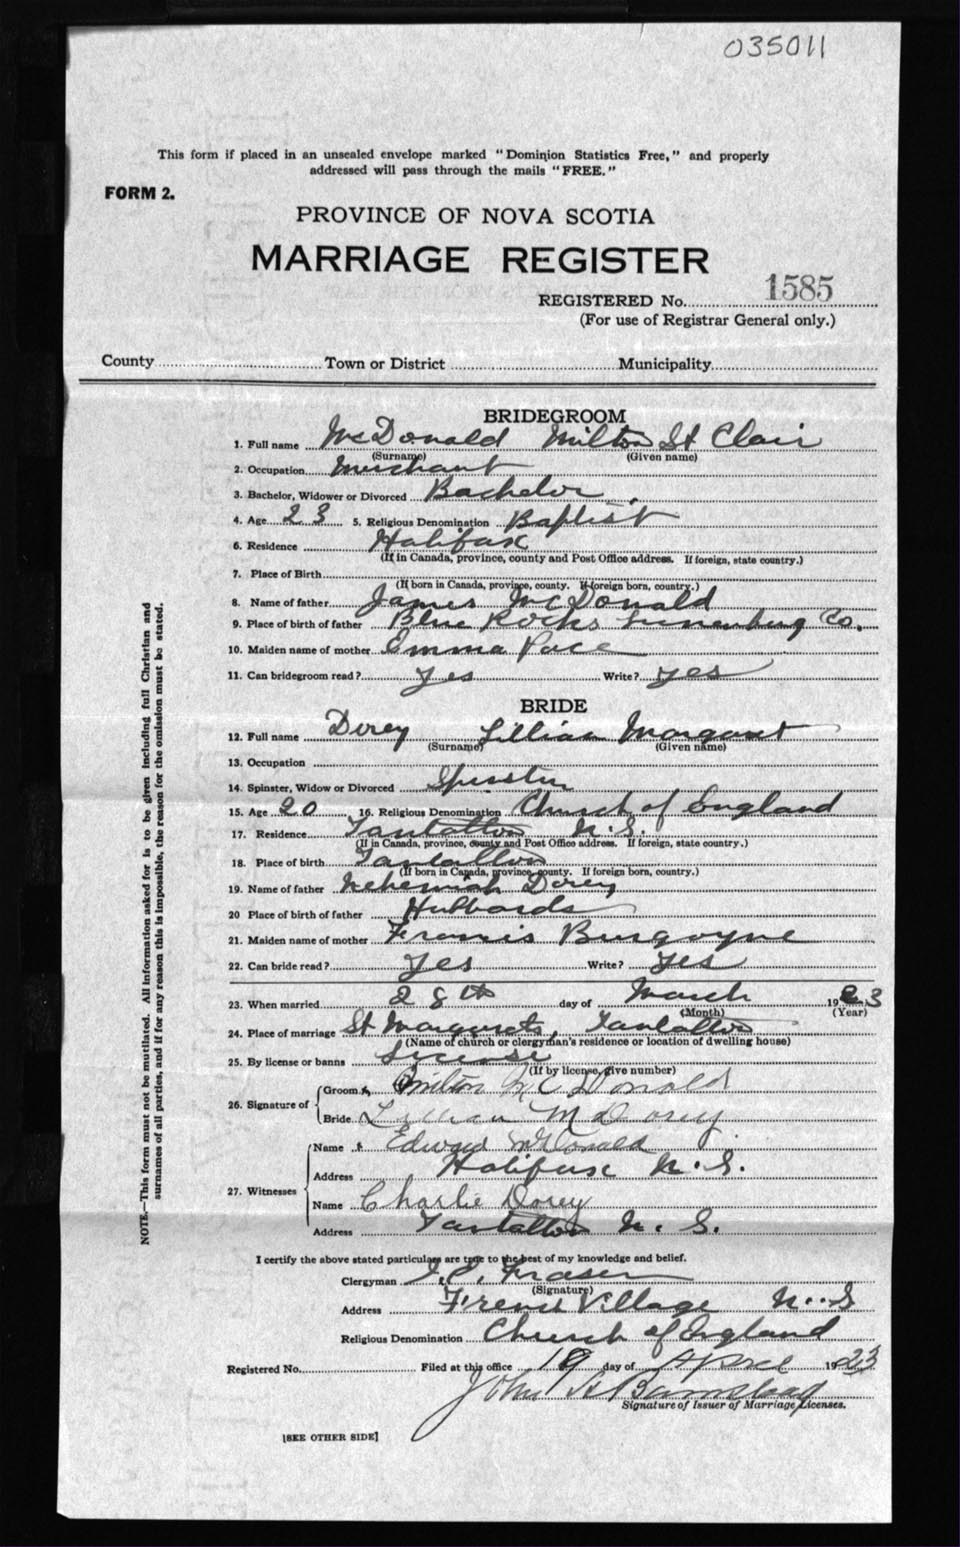 035011
This form if placed in an unsealed envelope marked "Dominion Statistics Free," and properly
addressed will pass through the mails "FREE."
FORM 2.
PROVINCE OF NOVA SCOTIA
MARRIAGE REGISTER
REGISTERED No. 1585
(For use of Registrar General only.)
County Town or District Municipality
BRIDEGROOM
1. Full name McDonald Milton St Clair
(Surname) (Given name)
2. Occupation Merchant
3. Bachelor, Widower or Divorced Bachelor
4. Age 23 5. Religious Denomination Baptist
6. Residence Halifax
(If in Canada, province, county and Post Office address. If foreign, state country.)
7. Place of Birth
(If born in Canada, province, county. If foreign born, country.)
8. Name of father James McDonald
9. Place of birth of father Blue Rocks Lunenburg Co.
10. Maiden name of mother Emma Pace
11. Can bridegroom read? Yes Write? Yes
BRIDE
12. Full name Dorey Lillian Margaret
(Surname) (Given name)
13. Occupation
14. Spinster, Widow or Divorced Spinster
15. Age 20 16. Religious Denomination Church of England
17. Residence Tantallon N.S.
(If in Canada, province, county and Post Office address. If foreign, state country.)
18. Place of birth Tantallon
(If born in Canada, province, county. If foreign born, country.)
19. Name of father Nehemiah Dorey
20 Place of birth of father Hubbards
21. Maiden name of mother Francis Burgoyne
22. Can bride read? Yes Write? Yes
23. When married 28th day of March 1923
(Month) (Year)
24. Place of marriage St Margarets, Tantallon
(Name of church or clergyman's residence or location of dwelling house)
25. By license or banns License
(If by license, give number)
26. Signature of
Groom Milton McDonald
Bride Lillian M Dorey
27. Witnesses
Name Edward McDonald
Address Halifax N.S.
Name Charlie Dorey
Address Tantallon N.S.
I certify the above stated particulars are true to the best of my knowledge and belief.
Clergyman Fraser
(Signature)
Address French Village N.S
Religious Denomination Church of England
Registered No. Filed at this office 19 day of April 1923
John
Signature of Issuer of Marriage Licenses.
[SEE OTHER SIDE]
NOTE.—This form must not be mutilated. All information asked for is to be given including full Christian and
surnames of all parties, and if for any reason this is impossible, the reason for the omission must be stated.